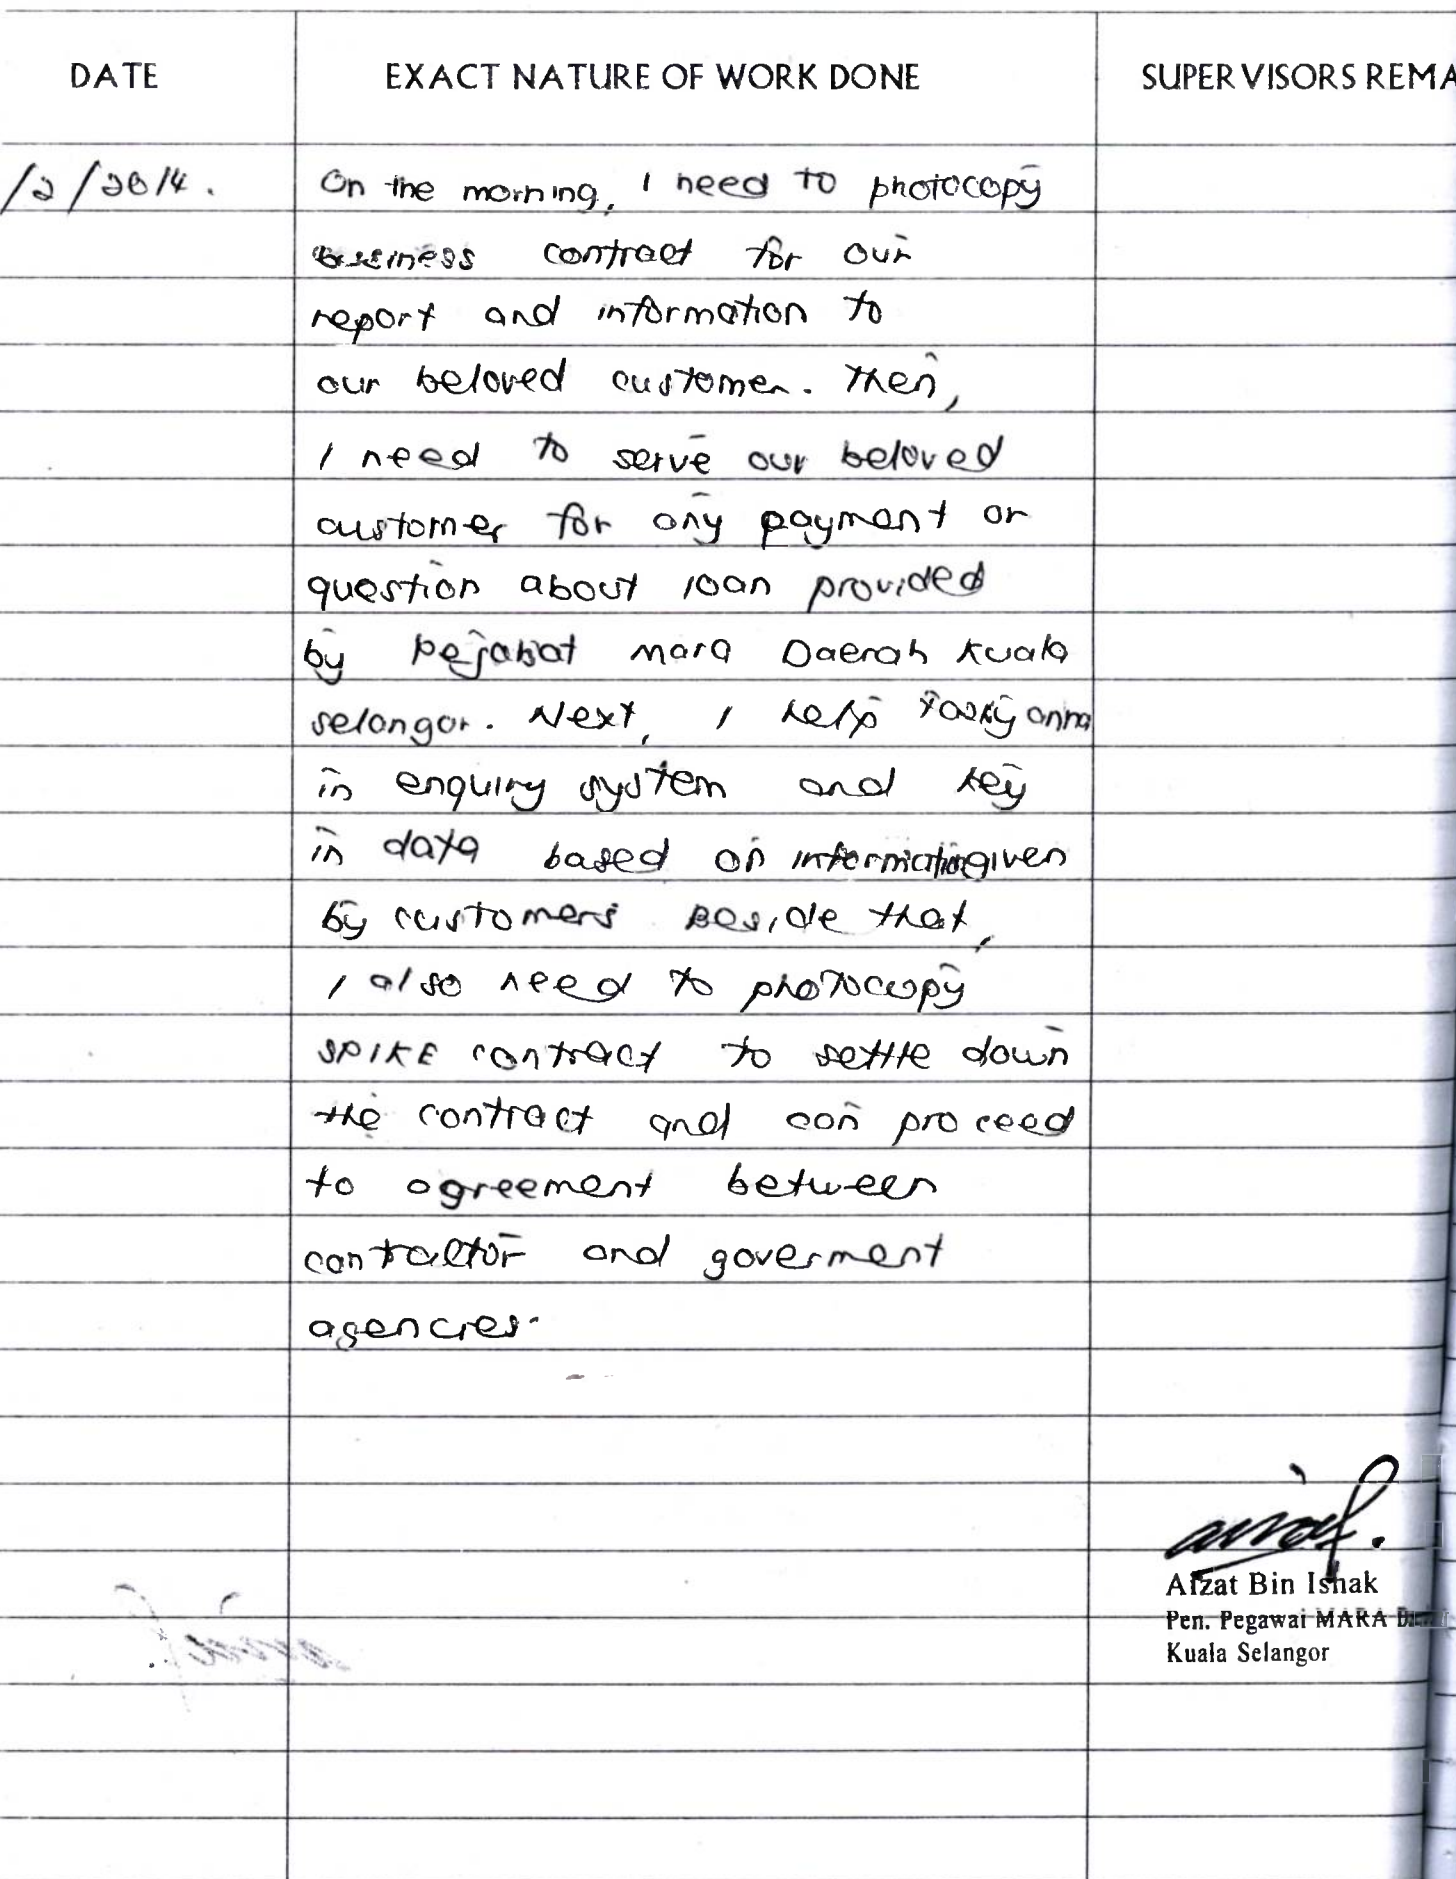 DATE EXACT NATURE OF WORK DONE SUPERVISORS REMA
/2/2014. On the morning, I need to photocopy
business contract for our
report and information to
our beloved customer. Then,
I need to serve our beloved
customer for any payment or
question about loan provided
by Pejabat mara Daerah Kuala
selangor. Next, I help
in enquiry system and key
in data based on information given
by customers Beside that,
I also need to photocopy
SPIKE contract to settle down
the contract and can proceed
to agreement between
contractor and goverment
agencies.
Afzat Bin Ishak
Pen. Pegawai MARA
Kuala Selangor